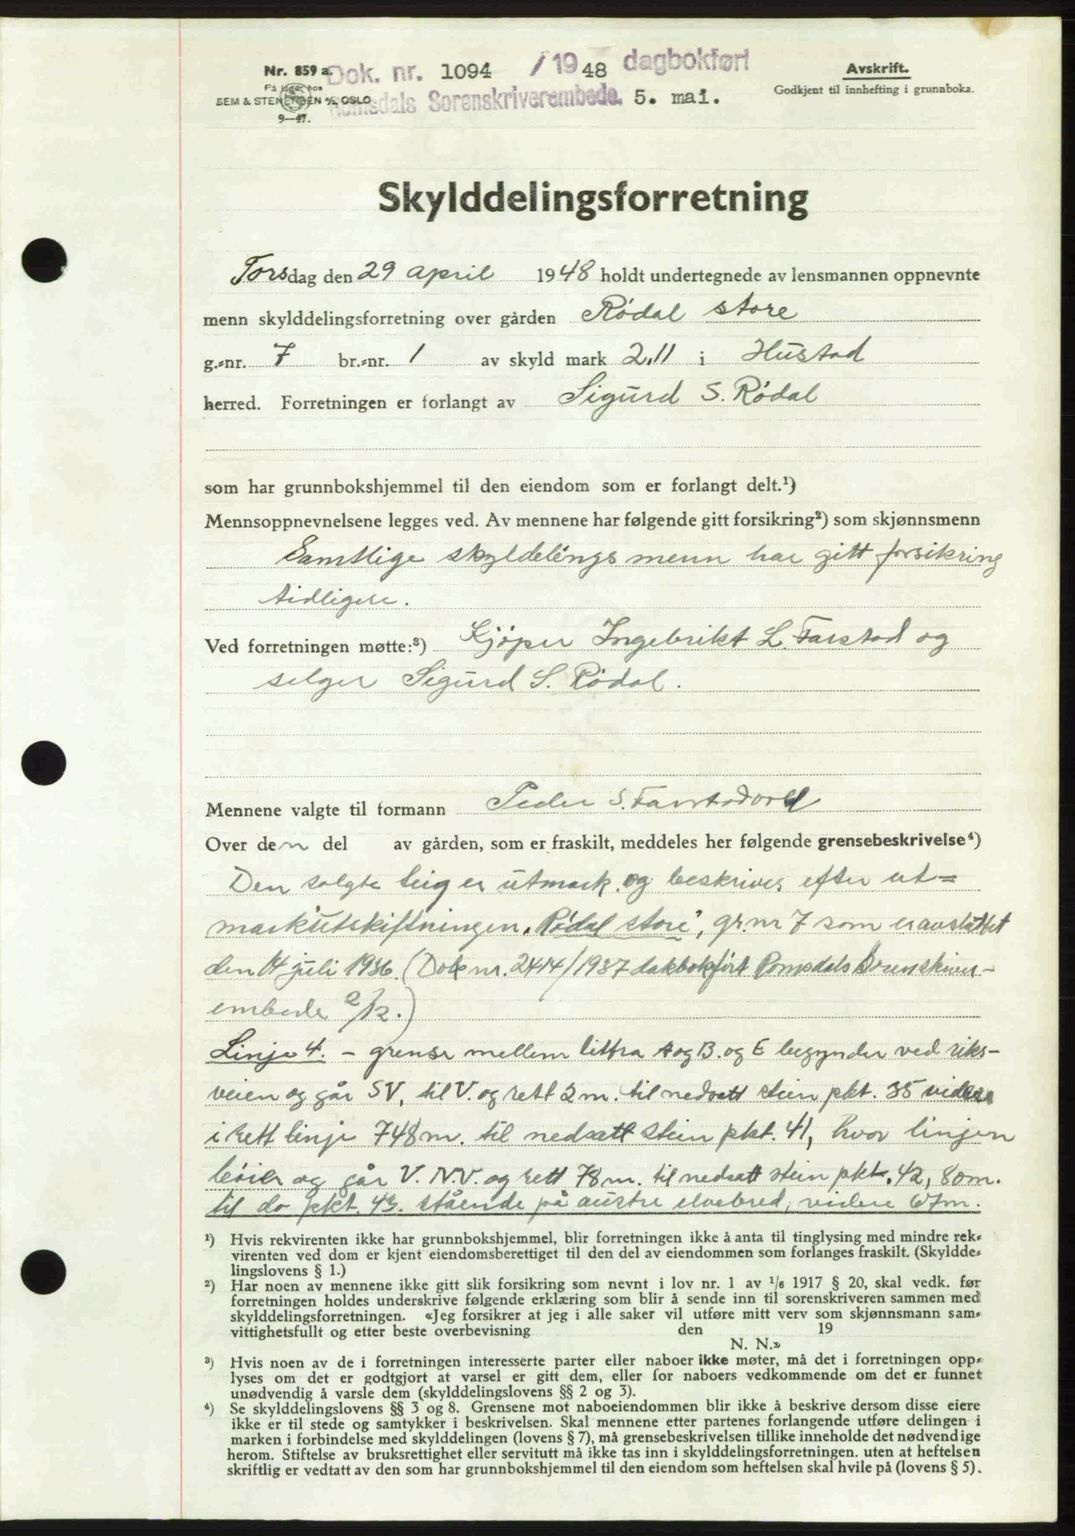 Nr. 859 a.
På lager hos
SEM & STENERSEN A/S OSLO
9—47.
Dok. nr. 1094 /1948 dagbokført
Romsdals Sorenskriverembede. 5. mai.
Avskrift.
Godkjent til innhefting i grunnboka.
Skylddelingsforretning
Torsdag den 29 april 1948 holdt undertegnede av lensmannen oppnevnte
menn skylddelingsforretning over gården Rødal store
g.-nr. 7 br.-nr. 1 av skyld mark 2.11 i Hustad
herred. Forretningen er forlangt av Sigurd S. Rødal
som har grunnbokshjemmel til den eiendom som er forlangt delt.¹)
Mennsoppnevnelsene legges ved. Av mennene har følgende gitt forsikring²) som skjønnsmenn
Samtlige skyldelings menn har gitt forsikring
tidligere.
Ved forretningen møtte:³) Kjöper Ingebrikt L. Farstad og
selger Sigurd S. Rödal.
Mennene valgte til formann Peder S. Farstadvoll
Over den del av gården, som er fraskilt, meddeles her følgende grensebeskrivelse⁴)
Den solgte teig er utmark og beskrives efter ut=
markutskiftningen „Rødal store", gr.nr 7 som er avsluttet
den 14 juli 1936. (Dok nr. 2414/1937 dakbokført Romsdals Sorenskriver-
embede 2/12.)
Linje 4. – grense mellem littra A og B. og E begynder ved riks-
veien og går SV, til V. og rett 2 m. til nedsatt stein pkt. 35 videre
i rett linje 748 m. til nedsatt stein pkt. 41, hvor linjen
bøier og går V. N.V. og rett 78 m. til nedsatt stein pkt. 42, 80 m.
til do pkt. 43. stående på austre elvebred, videre 67 m.
¹) Hvis rekvirenten ikke har grunnbokshjemmel, blir forretningen ikke å anta til tinglysing med mindre rek-
virenten ved dom er kjent eiendomsberettiget til den del av eiendommen som forlanges fraskilt. (Skyldde-
lingslovens § 1.)
²) Har noen av mennene ikke gitt slik forsikring som nevnt i lov nr. 1 av ¹/₆ 1917 § 20, skal vedk. før
forretningen holdes underskrive følgende erklæring som blir å sende inn til sorenskriveren sammen med
skylddelingsforretningen. «Jeg forsikrer at jeg i alle saker vil utføre mitt verv som skjønnsmann sam-
vittighetsfullt og etter beste overbevisning den 19
N. N.»
³) Hvis noen av de i forretningen interesserte parter eller naboer ikke møter, må det i forretningen opp-
lyses om det er godtgjort at varsel er gitt dem, eller for naboers vedkommende om det er funnet
unødvendig å varsle dem (skylddelingslovens §§ 2 og 3).
⁴) Se skylddelingslovens §§ 3 og 8. Grensene mot naboeiendommen blir ikke å beskrive dersom disse eiere
ikke er til stede og samtykker i beskrivelsen. Skal mennene etter partenes forlangende utføre delingen i
marken i forbindelse med skylddelingen (lovens § 7), må grensebeskrivelsen tillike inneholde det nødvendige
herom. Stiftelse av bruksrettighet eller servitutt må ikke tas inn i skylddelingsforretningen, uten at heftelsen
skriftlig er vedtatt av den som har grunnbokshjemmel til den eiendom som heftelsen skal hvile på (lovens § 5).